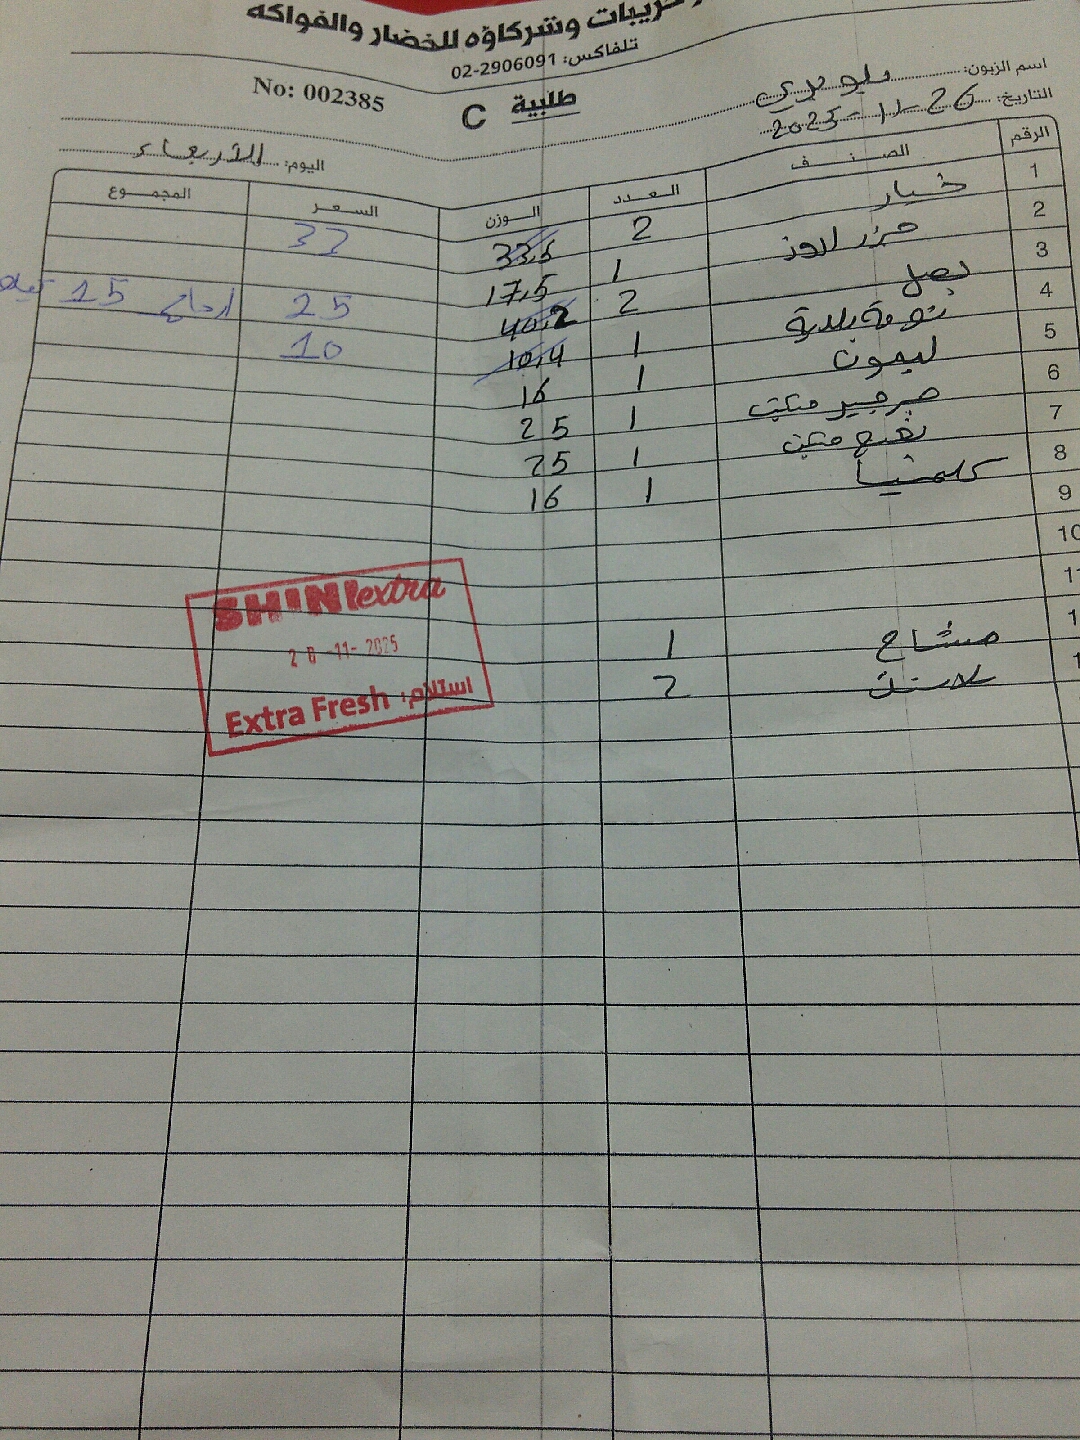 وشركاؤه للخضار والفواكه
تلفاكس: 02-2906091
No: 002385
طلبية C
اسم الزبون:
التاريخ: 2025-11-26
اليوم: الأربعاء
الرقم الصنف العدد الوزن السعر المجموع
1 خيار 2 33,5 33
2 جزر لاوز 1 17,5
3 بصل 2 40,2 25 ارجاع 15
4 تومة بلدية 1 10,4 10
5 ليمون 1 16
6 جرجير مكتب 1 25
7 نعنع مكتب 1 25
8 كلمنتينا 1 16
9
10
11
مشاح 1
2
SHINI extra
26-11-2025
Extra Fresh استلام: